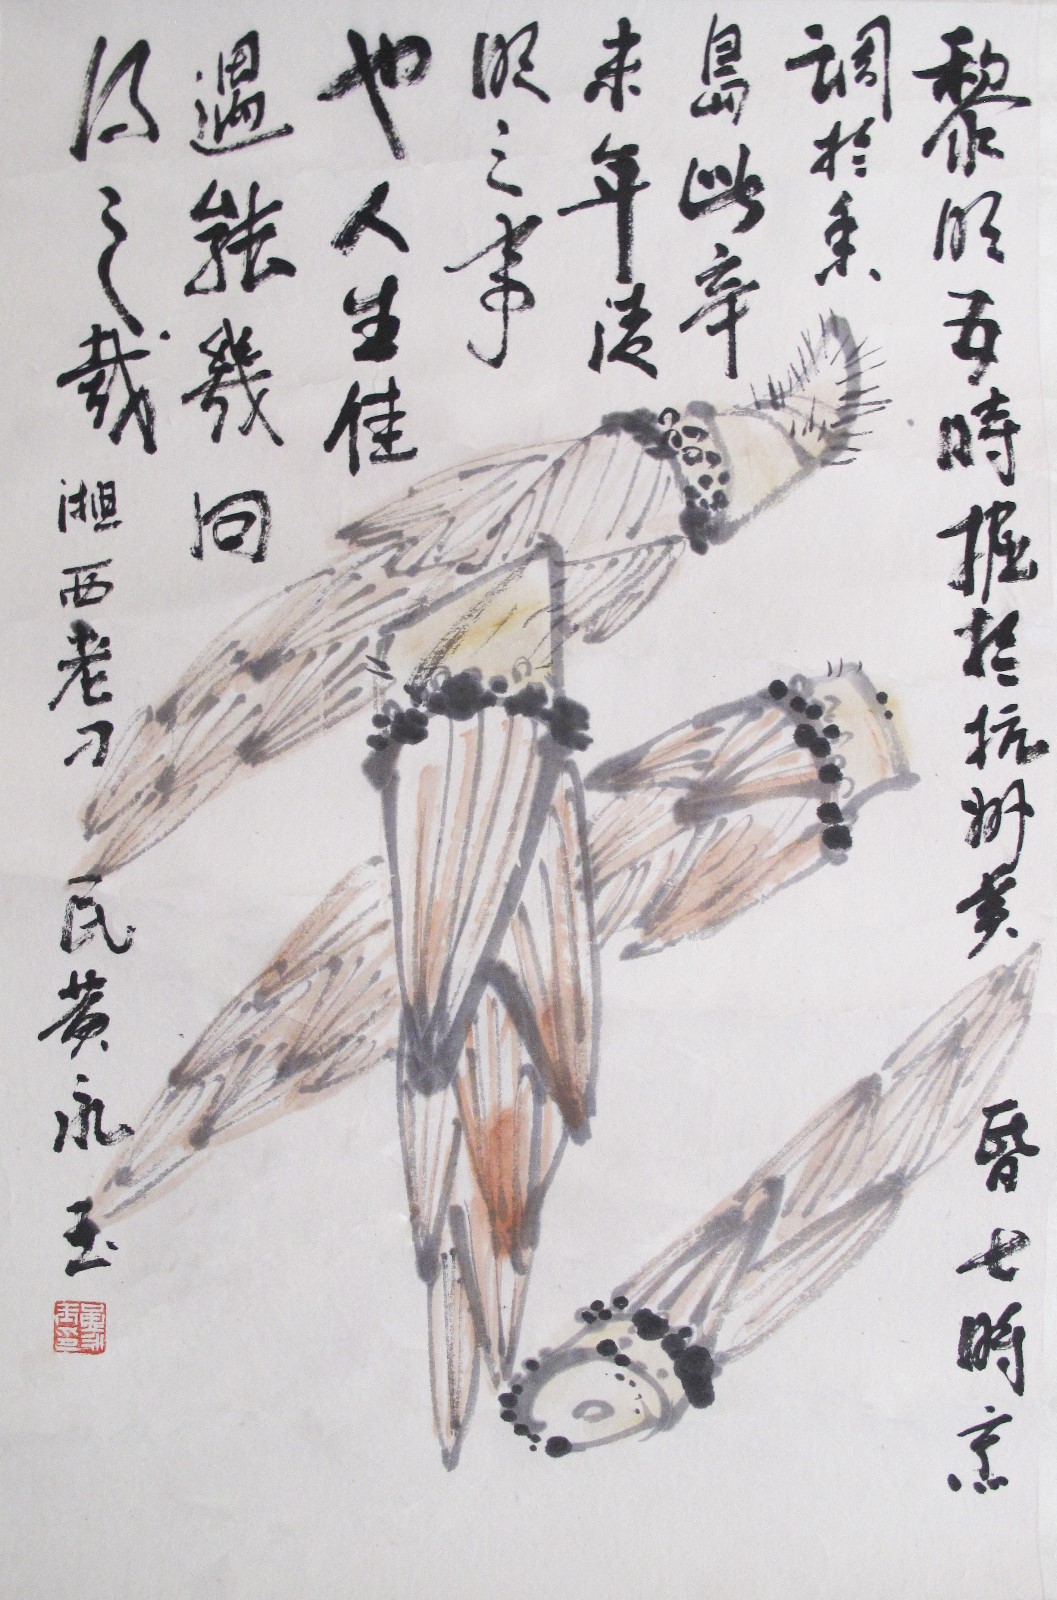 黎明五時掘於杭州黄昏七時烹
調於香
島此辛
未年清
明之事
也人生佳
遇能幾回
得之哉
湘西老刁民黄永玉